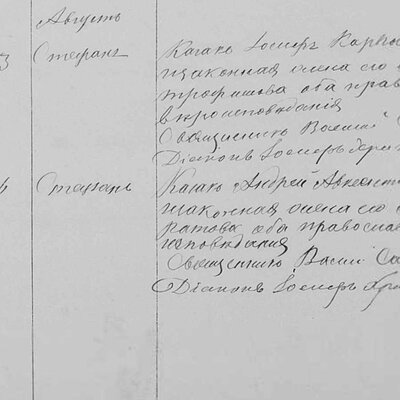 Августъ
3 Стефанъ Казакъ Іосифъ Карпо
и законная жена его
трофимова оба прав
вѣроисповѣданія
Священникъ Василій
Діаконъ Іосифъ
4 Стефанъ Казакъ Андрей Авксент
и законная жена его
ратова оба православ
исповѣданія
Священникъ Василій
Діаконъ Іосифъ